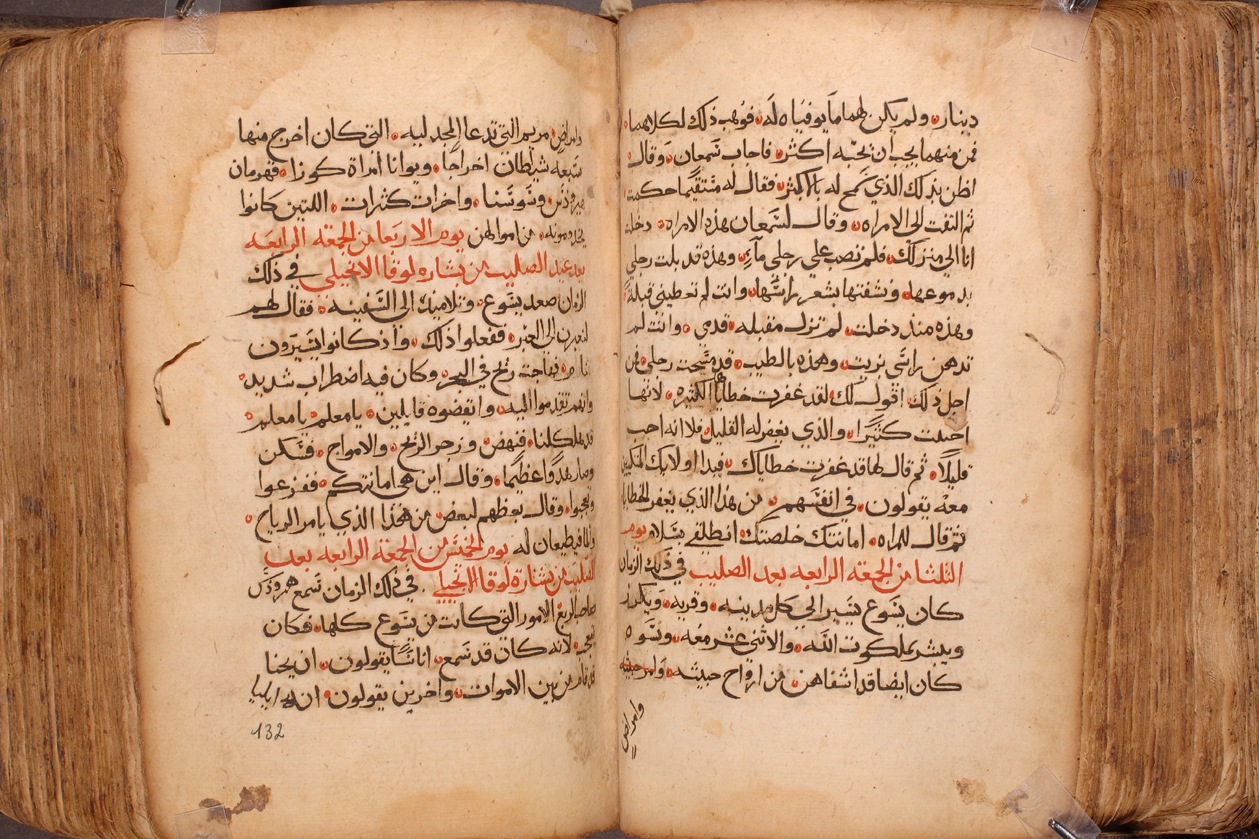 دينار ولم يكن لهما ما يوفياه له فوهب ذلك لكلاهما
فمن منهما يجب ان يحبه اكثر فاجاب شمعان وقال
اظن بذلك الذي سمح له بالاكثر فقال له مستقيما حكمت
ثم التفت الى الامراه وقال لشمعان هذه الامراه دخلت
انا الى منزلك فلم تصب على رجلي ماء وهذه قد بلت رجلي
بدموعها ونشفتها بشعر راسها وانت لم تعطيني قبلة
وهذه منذ دخلت لم تزل مقبله قدمي وانت لم
تدهن راسي بزيت وهذه بالطيب قد مسحت رجلي فمن
اجل ذلك اقول لك لقد غفرت خطاياها الكثيره لانها
احبت كثيرا والذي يغفر له القليل فلانه احب
قليلا ثم قال لها قد غفرت خطاياك فبدا اولايك المتكيين
معه يقولون في انفسهم من هذا الذي يغفر الخطايا
ثم قال للمراه امانتك خلصتك انطلقي بسلام يوم
الثلثا من الجمعه الرابعه بعد الصليب في ذلك الزمان
كان يسوع يسير الى كل مدينه وقريه ويكرز
ويبشر بملكوت الله والاثنى عشر معه ونسوه
كان ايضا قد اشفاهن من ارواح خبيثه
وامراض
وامراض مريم التي تدعا المجدليه التي كان اخرج منها
سبعه شيطان اخراجا ويوانا امراة كوزا قهرمان
هيرودس وسوسنا واخرات كثرات اللتين كانوا
يخدمونه من اموالهن يوم الاربعا من الجمعه الرابعه
بعد عيد الصليب من بشاره لوقا الانجيلي في ذلك
الزمان صعد يسوع وتلاميذه الى السفينه فقال لهم
لنعبر الى العبر ففعلوا ذلك واذ كانوا يسيرون
نام ففاجت ريح في البحر وكان فيه اضطراب شديد
وانهم تقدموا اليه وايقضوه قايلين يامعلم يامعلم
قد هلكنا فنهض وزجر الريح والامواج فسكن
وصار هدوا عظيما وقال اين هي امانتكم ففزعوا
وتعجبوا وقال بعظهم لبعض من هذا الذي يامر الرياح
والما فيطيعان له يوم الخميس من الجمعه الرابعه بعد
الصليب من بشارة لوقا الانجيلي في ذلك الزمان سمع هرودس
صاحب الربع الامور التي كانت من يسوع كلها فكان
لانه كان قد سمع اناسا يقولون ان يحنا
قد قام من بين الاموات واخرين يقولون انه ايليا
132